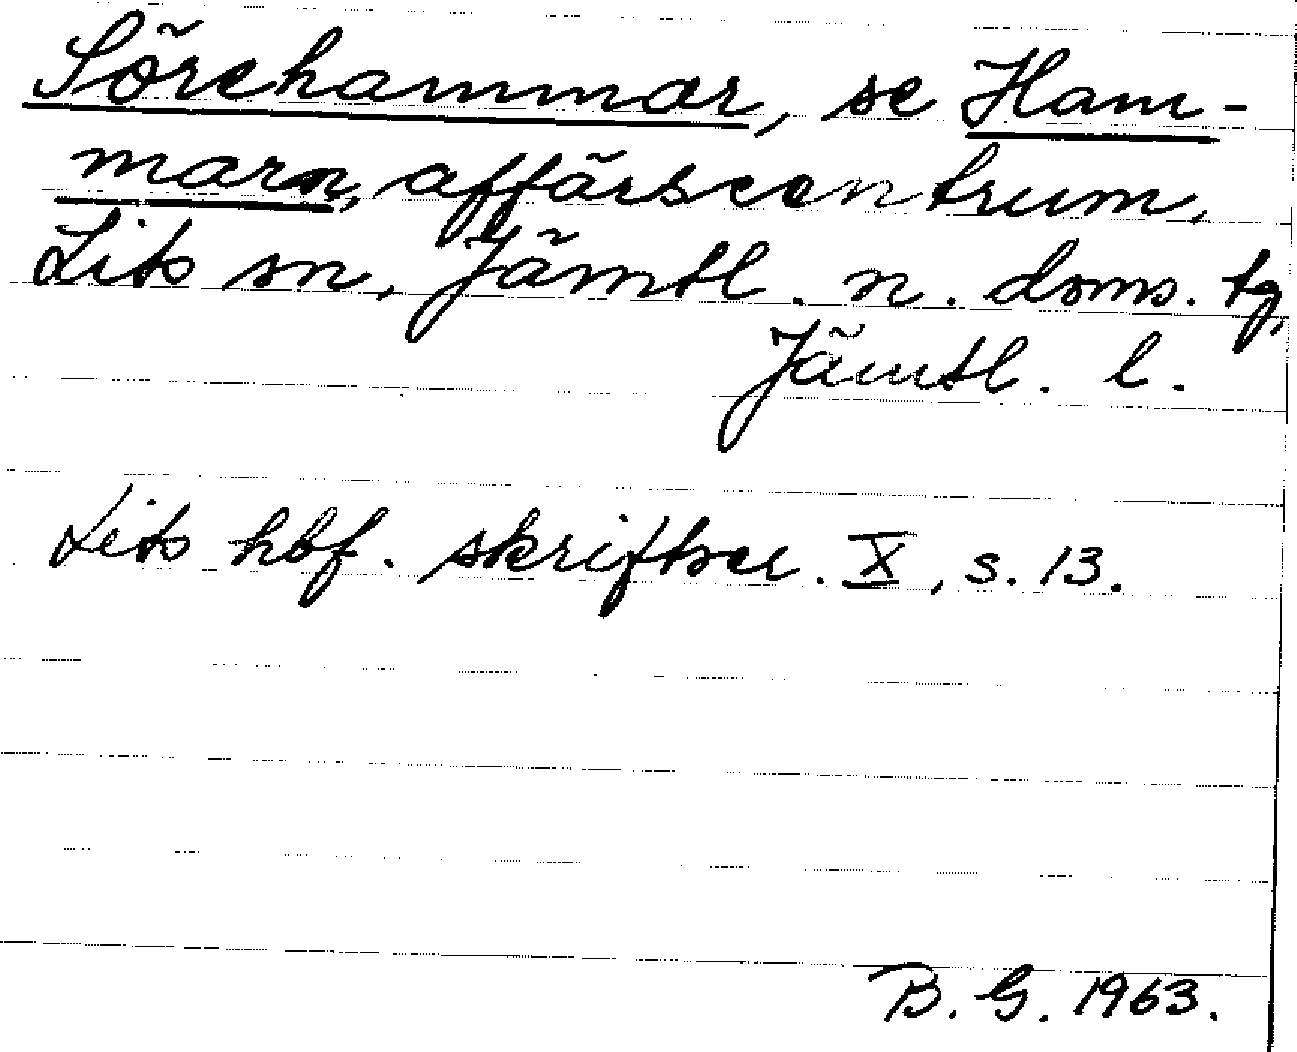 Sörehammar, se Ham-
marn, affärscentrum,
Lits sn, Jämtl. n. doms. tg,
Jämtl. l.
Lits hbf. skriftser. X, s. 13.
B. G. 1963.